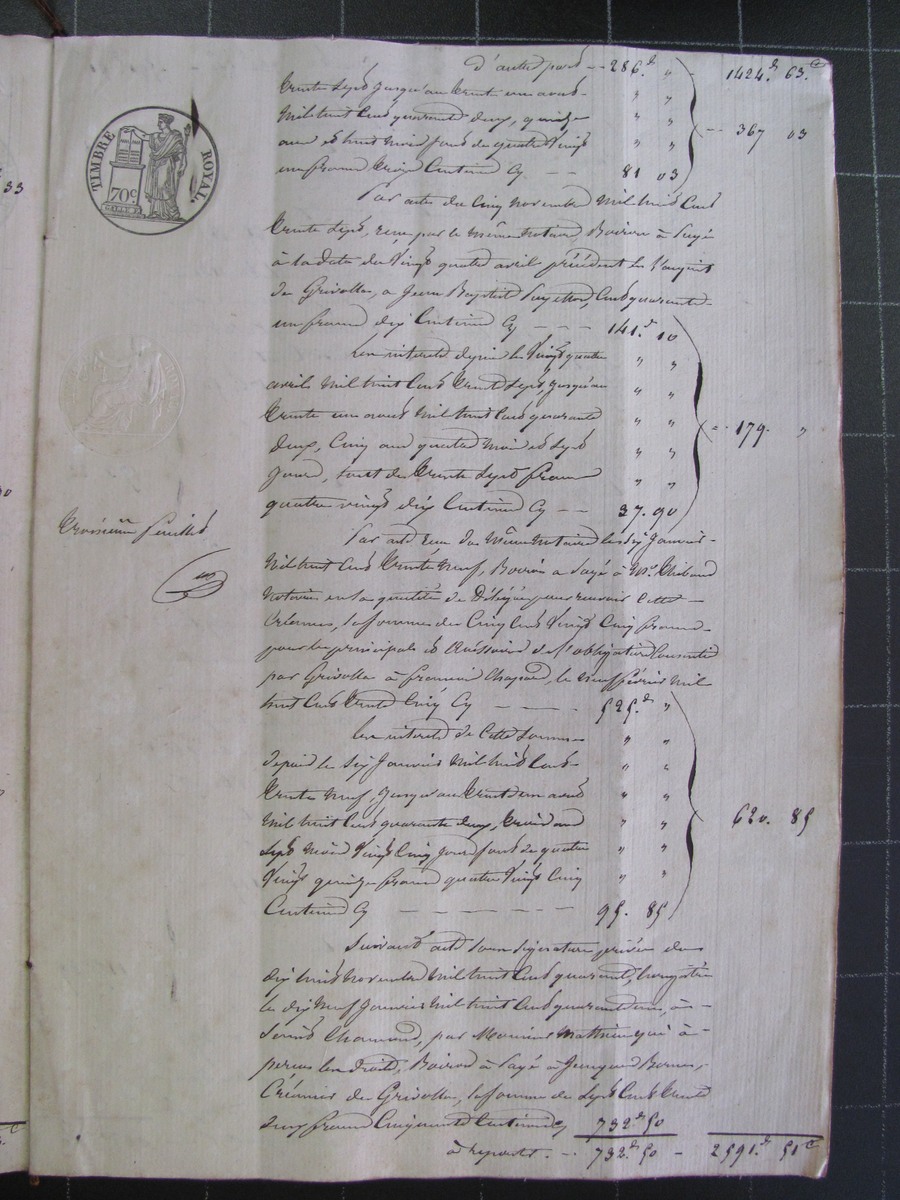 33
TIMBRE ROYAL
70c
d'autre part -- 286.f " - 1424.f 63.c
trente sept jusqu'au trente un août " "
mil huit cent quarante deux, quinze " " -- 367 03
ans et huit mois font de quatre vingt " "
un francs treize centimes Cy -- 81 03
Par acte du cinq novembre mil huit cent
trente sept, reçu par le même notaire Boiron a payé
à la date du vingt quatre avril précédent en l'acquit
de Grivolla, a Jean Baptiste cent quarante
un francs dix centimes Cy --- 141.f 10
Les interets depuis le vingt quatre " "
avril mil huit cent trente sept jusqu'au " "
trente un août mil huit cent quarante " "
deux, cinq ans quatre mois et sept " " -- 179. "
jours, sont de trente sept francs " "
quatre vingt dix centimes Cy -- 37.90
Par acte reçu du même notaire le six janvier
mil huit cent trente neuf, Boiron a payé à Me.
troisième feuillet
notaire en sa qualité de délégué pour recevoir cette
créance, la somme de cinq cent vingt cinq francs
pour le principal et accessoire de l'obligation consentie
par Grivolla à le neuf février mil
huit cent trente cinq Cy --- 525.f "
Les interets de cette somme " "
depuis le six janvier mil huit cent " "
trente neuf, jusqu'au trente un août " "
mil huit cent quarante deux, trois ans " " 620. 85
sept mois vingt cinq jours sont de quatre " "
vingt quinze francs quatre vingt cinq " "
centimes Cy ---- 95. 85
Suivant acte sous signature privée du
dix huit novembre mil huit cent quarante, enregistré
le dix neuf janvier mil huit cent quarante un, à
Saint Chamond, par Monsieur Mathieu qui à
perçu les droits, Boiron a payé a
créancier de Grivolla, la somme de sept cent trente
deux francs cinquante centimes Cy 732.f 50
à reporter. -- 732.f 50 - 2591.f 51c